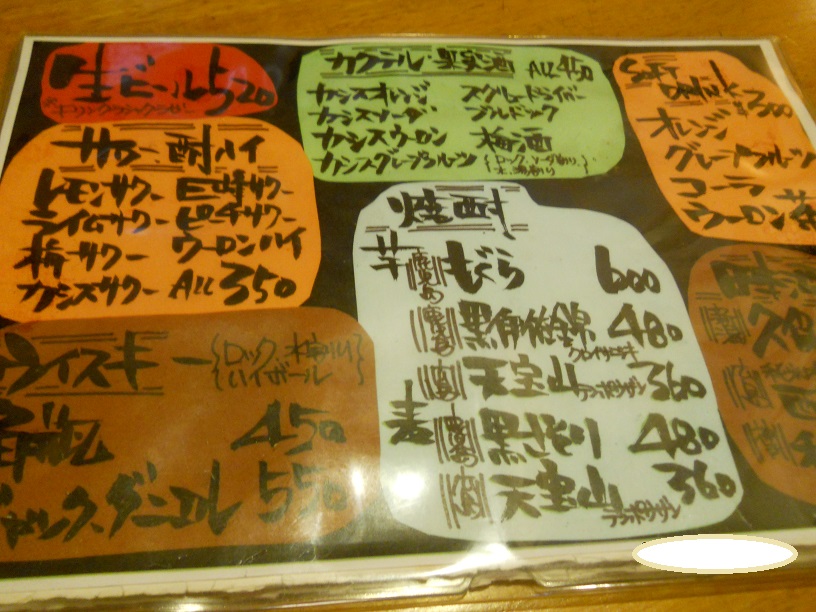 生ビール 520
※キリンクラシックラガー
サワー、酎ハイ
レモンサワー 巨峰サワー
ライムサワー ピーチサワー
梅サワー ウーロンハイ
カシスサワー ALL 350
ウイスキー
ロック、水割り
ハイボール
450
ジャック、ダニエル 550
カクテル・果実酒 ALL 450
カシスオレンジ スクリュードライバー
カシスソーダ ブルドック
カシスウーロン 梅酒
カシスグレープフルーツ
ロック、ソーダ割り、
水、湯割り
焼酎
芋 鹿児島 もぐら 600
黒伊佐錦 480
クロイサニシキ
天宝山 360
テンポウザン
麦 黒さそり 480
天宝山 360
テンポウザン
SOFT
DRINK
オレンジ
グレープフルーツ
コーラ
ウーロン茶